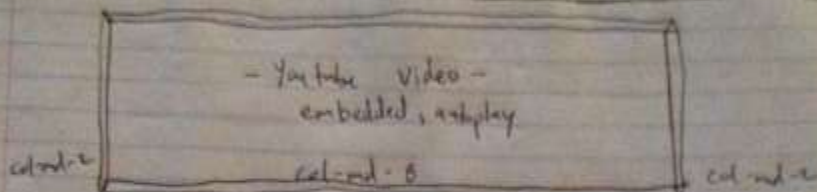 - Youtube Video -
embedded, autoplay
col-md-2
col-md-8
col-md-2